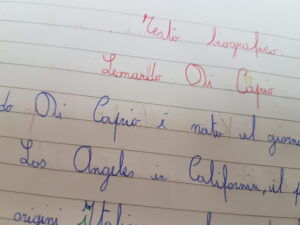 Testo biografico
Leonardo Di Caprio
do Di Caprio è nato il giorn
Los Angeles in California, il
origini Itali